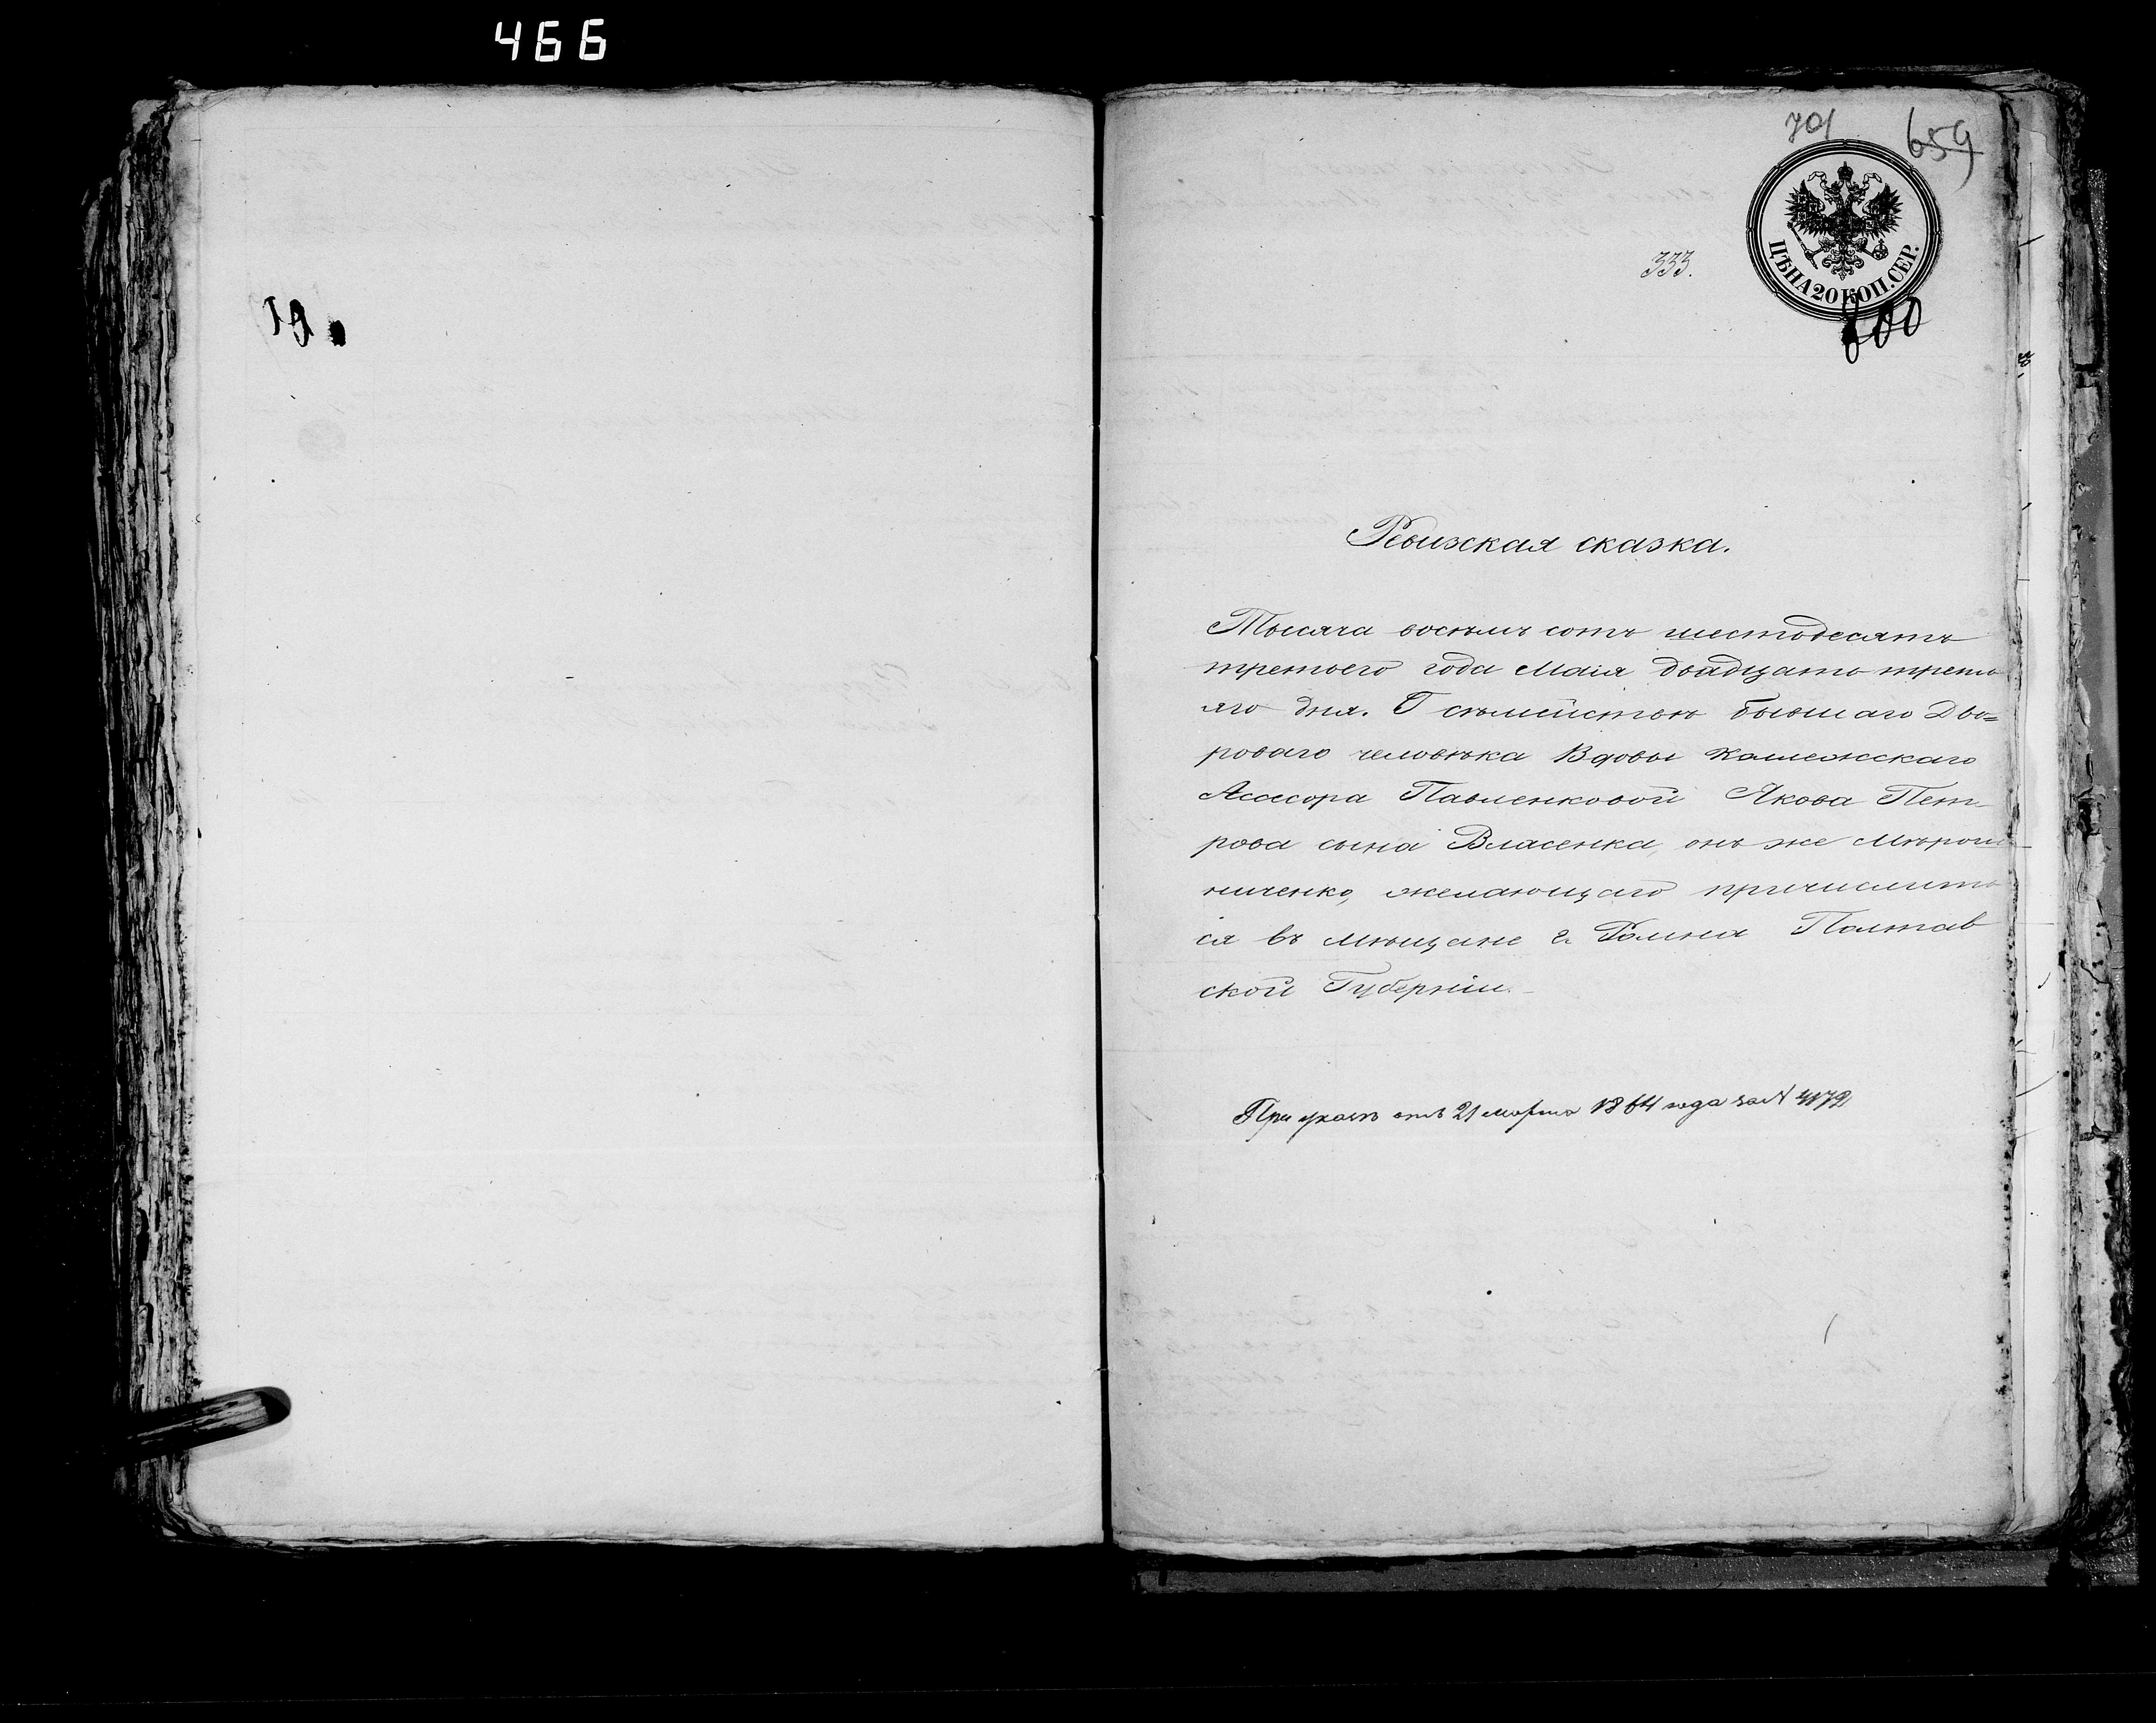 466
701
659
333.
ЦѢНА 20 КОП. СЕР.
600
Ревизская сказка.
Тысяча восемь сотъ шестьдесятъ
третьего года Маія двадцать треть
яго дня. О съмействѣ бывшаго Дво=
роваго человѣка Вдовы Колежскаго
Асесора Павленковой Якова Пет-
рова сына Власенка, онъ же Мѣрош
ниченко, желающаго причислить
ся въ мѣщане г. Ромна Полтав
ской Губерніи.
При указѣ отъ 21 марта 1864 года за №